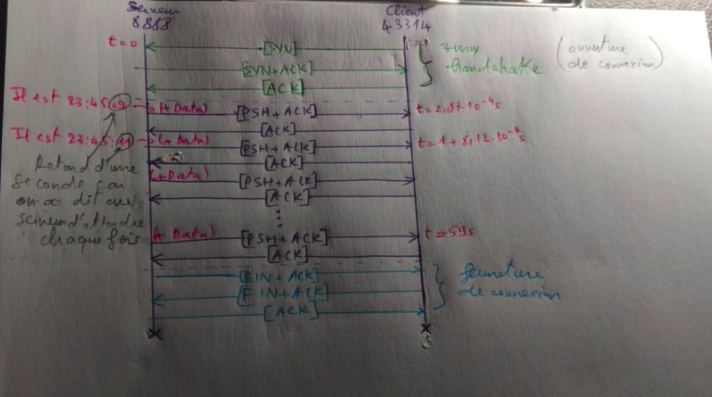 Serveur
8888
Client
43314
t=0
[SYN]
[SYN+ACK]
[ACK]
3-way
Handshake
(ouverture
de connexion)
Il est 23:45:09
(+Data)
[PSH+ACK]
t=2,87.10⁻⁴s
[ACK]
Il est 23:45:11
(+Data)
[PSH+ACK]
t=1+8,12.10⁻⁴s
[ACK]
(+Data)
[PSH+ACK]
[ACK]
Retard d'une
seconde car
on a dit au
serveur d'attendre
chaque fois
(+Data)
[PSH+ACK]
t=59s
[ACK]
[FIN+ACK]
[FIN+ACK]
[ACK]
fermeture
de connexion